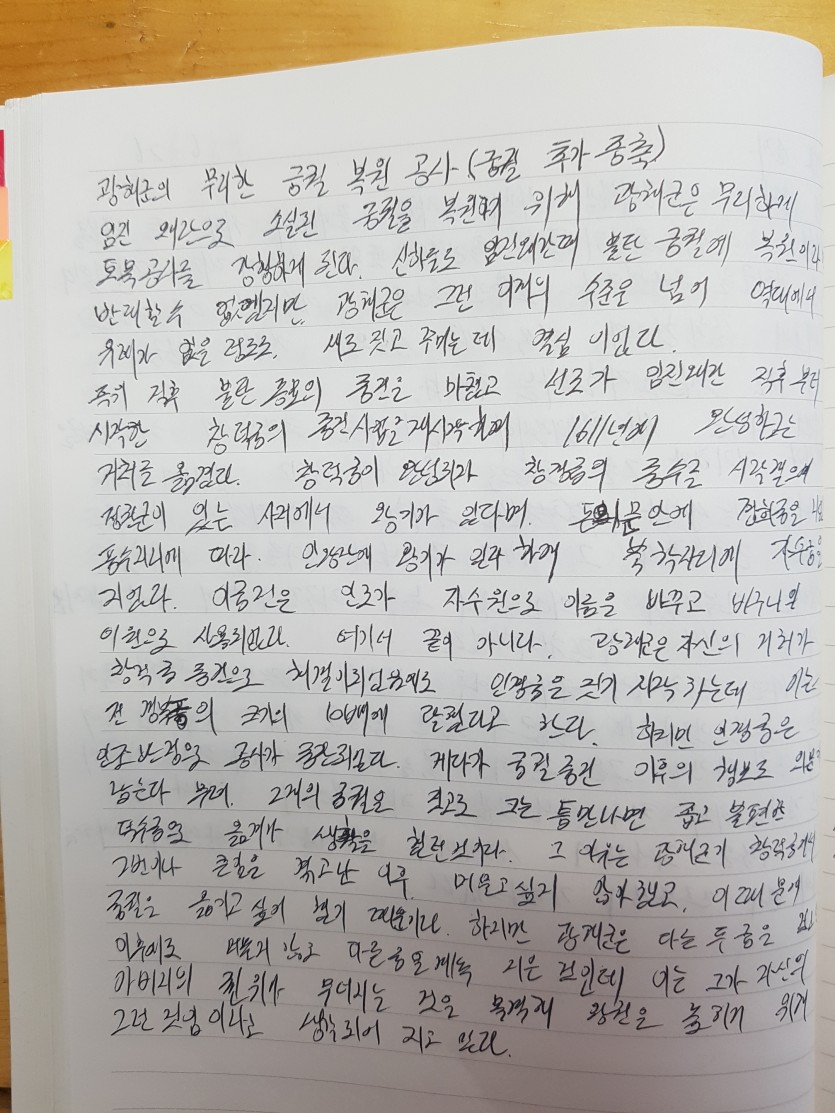 광해군의 무리한 궁궐 복원 공사 (궁궐 추가 증축)
임진 왜란으로 소실된 궁궐을 복원하기 위해 광해군은 무리하게
토목공사를 강행하게 된다. 신하들도 임진왜란때 불탄 궁궐에 복원이라
반대할수 없었지만, 광해군은 그런 의 수준을 넘어 역대에서
유례가 없을 정도로, 새로 짓고 꾸미는데 열심 이었다.
즉위 직후 불탄 종묘의 중건을 마쳤고 선조가 임진왜란 직후 부터
시작한 창덕궁의 중건사업을 재시작하여 1611년에 완성하고는
거처를 옮겼다. 창덕궁이 완성되자 창경궁의 중수를 시작했으며
정원군이 있는 사저에서 왕기가 있다며. 안에 경희궁을
풍수지리에 따라. 인왕산에 왕기가 있다 하여 자리에 자수궁을
지었다. 이궁전은 인조가 자수원으로 이름을 바꾸고 비구니의
이원으로 사용되었다. 여기서 끝이 아니다. 광해군은 자신의 거처가
창덕궁 중건으로 해결이되었음에도 인경궁을 짓기 시작하는데 이는
전 의 크기의 10배에 달했다고 한다. 하지만 인경궁은
인조반정으로 공사가 중단되었다. 게다가 궁궐중건 이후의 행보도
남는다 무려. 2개의 궁궐을 짓고도 그는 틈만나면 좁고 불편한
덕수궁으로 옮겨가 생활을 했던것이다. 그 이유는 광해군이 창덕궁에서
그번이나 큰일을 겪고난 이후. 머물고싶지 않아했고, 이 때문에
궁궐을 옮기고 싶어 했기 때문이다. 하지만 광해군은 다른 두 궁을
이후에도 머물지 않고 다른궁을 계속 지은 것인데 이는 그가 자신의
아버지의 권위가 무너지는 것을 목격해 왕권을 높히기 위해
그런 것임이라고 생각되어 지고 있다.